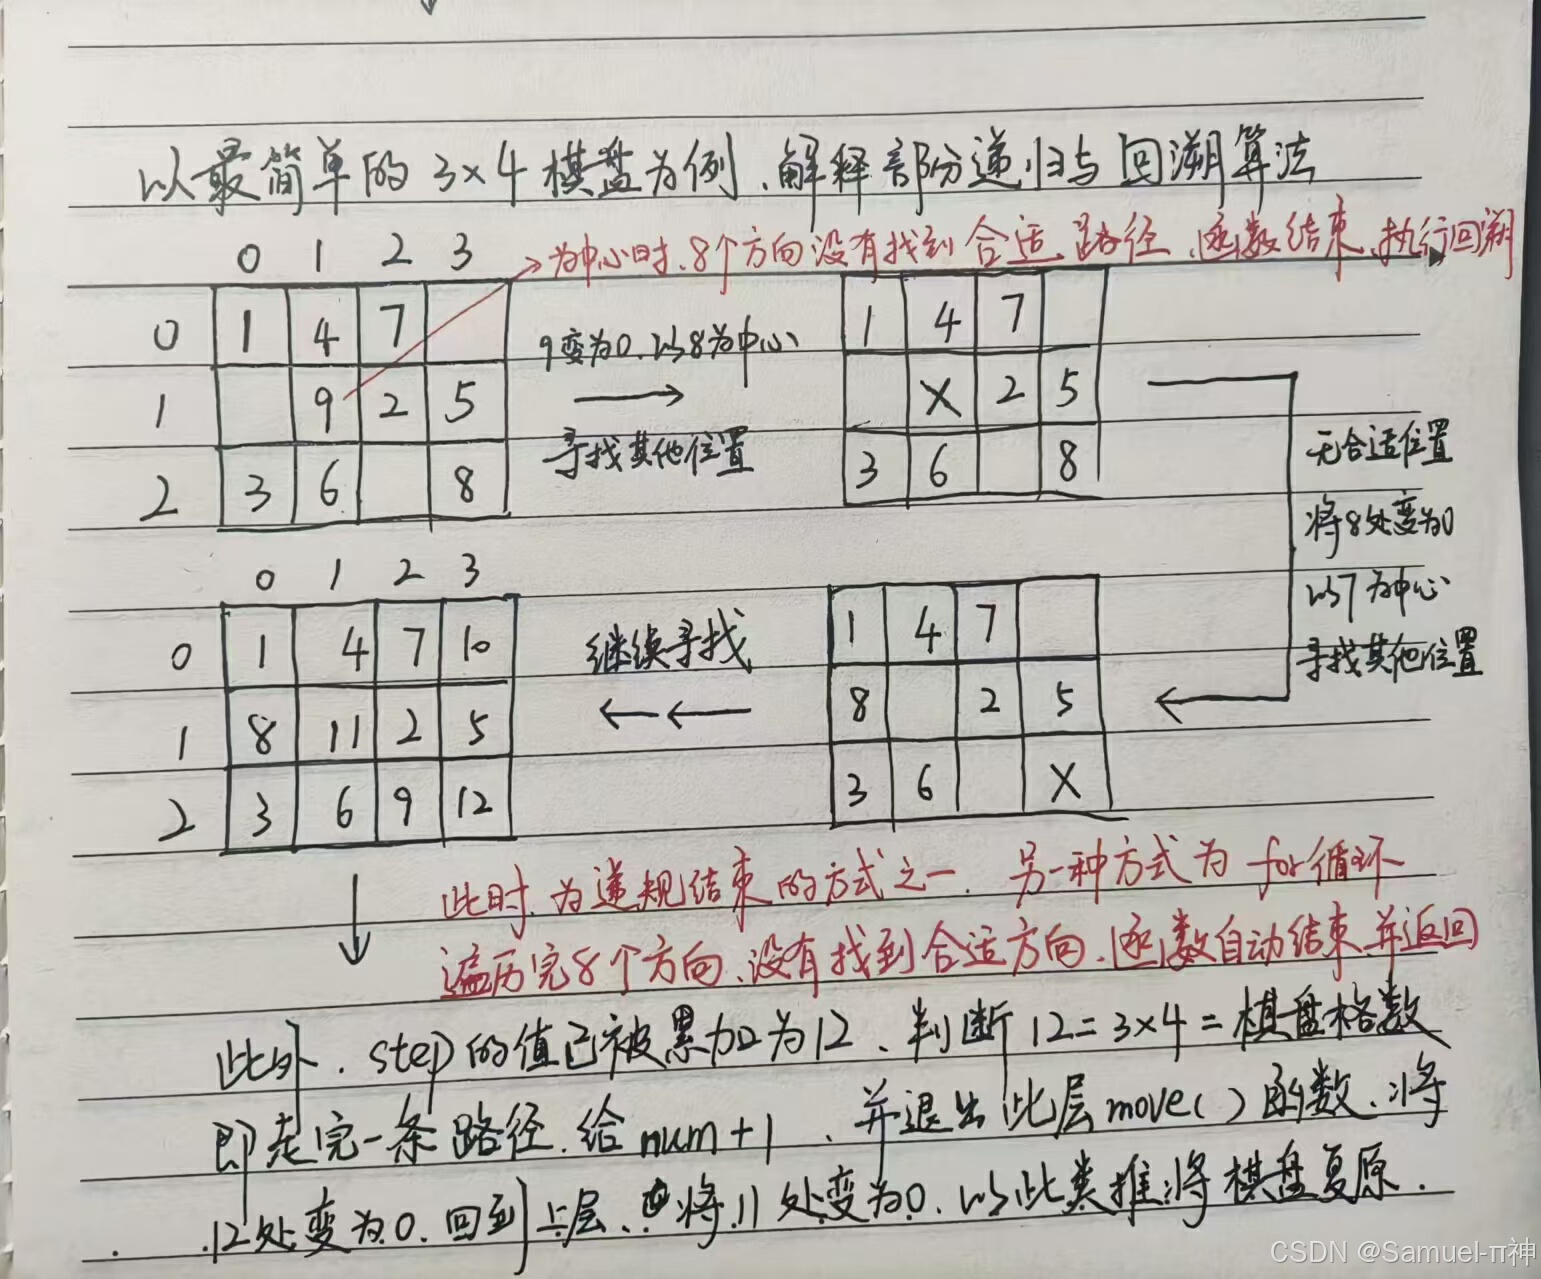 以最简单的3×4棋盘为例、解释部分递归与回溯算法
0 1 2 3
为中心时、8个方向没有找到合适路径、函数结束、执行回溯
0 1 4 7
1 9 2 5
2 3 6 8
9变为0.以8为中心
寻找其他位置
1 4 7
X 2 5
3 6 8
无合适位置
将8处变为0
以7为中心
寻找其他位置
1 4 7
8 2 5
3 6 X
继续寻找
0 1 2 3
0 1 4 7 10
1 8 11 2 5
2 3 6 9 12
此时为递规结束的方式之一.另一种方式为for循环
遍历完8个方向、没有找到合适方向、函数自动结束并返回
此外.step的值已被累加为12、判断12=3×4=棋盘格数
即走完一条路径.给num+1、并退出此层move()函数、将
12处变为0.回到上层、将11处变为0.以此类推将棋盘复原.
CSDN @Samuel-π神